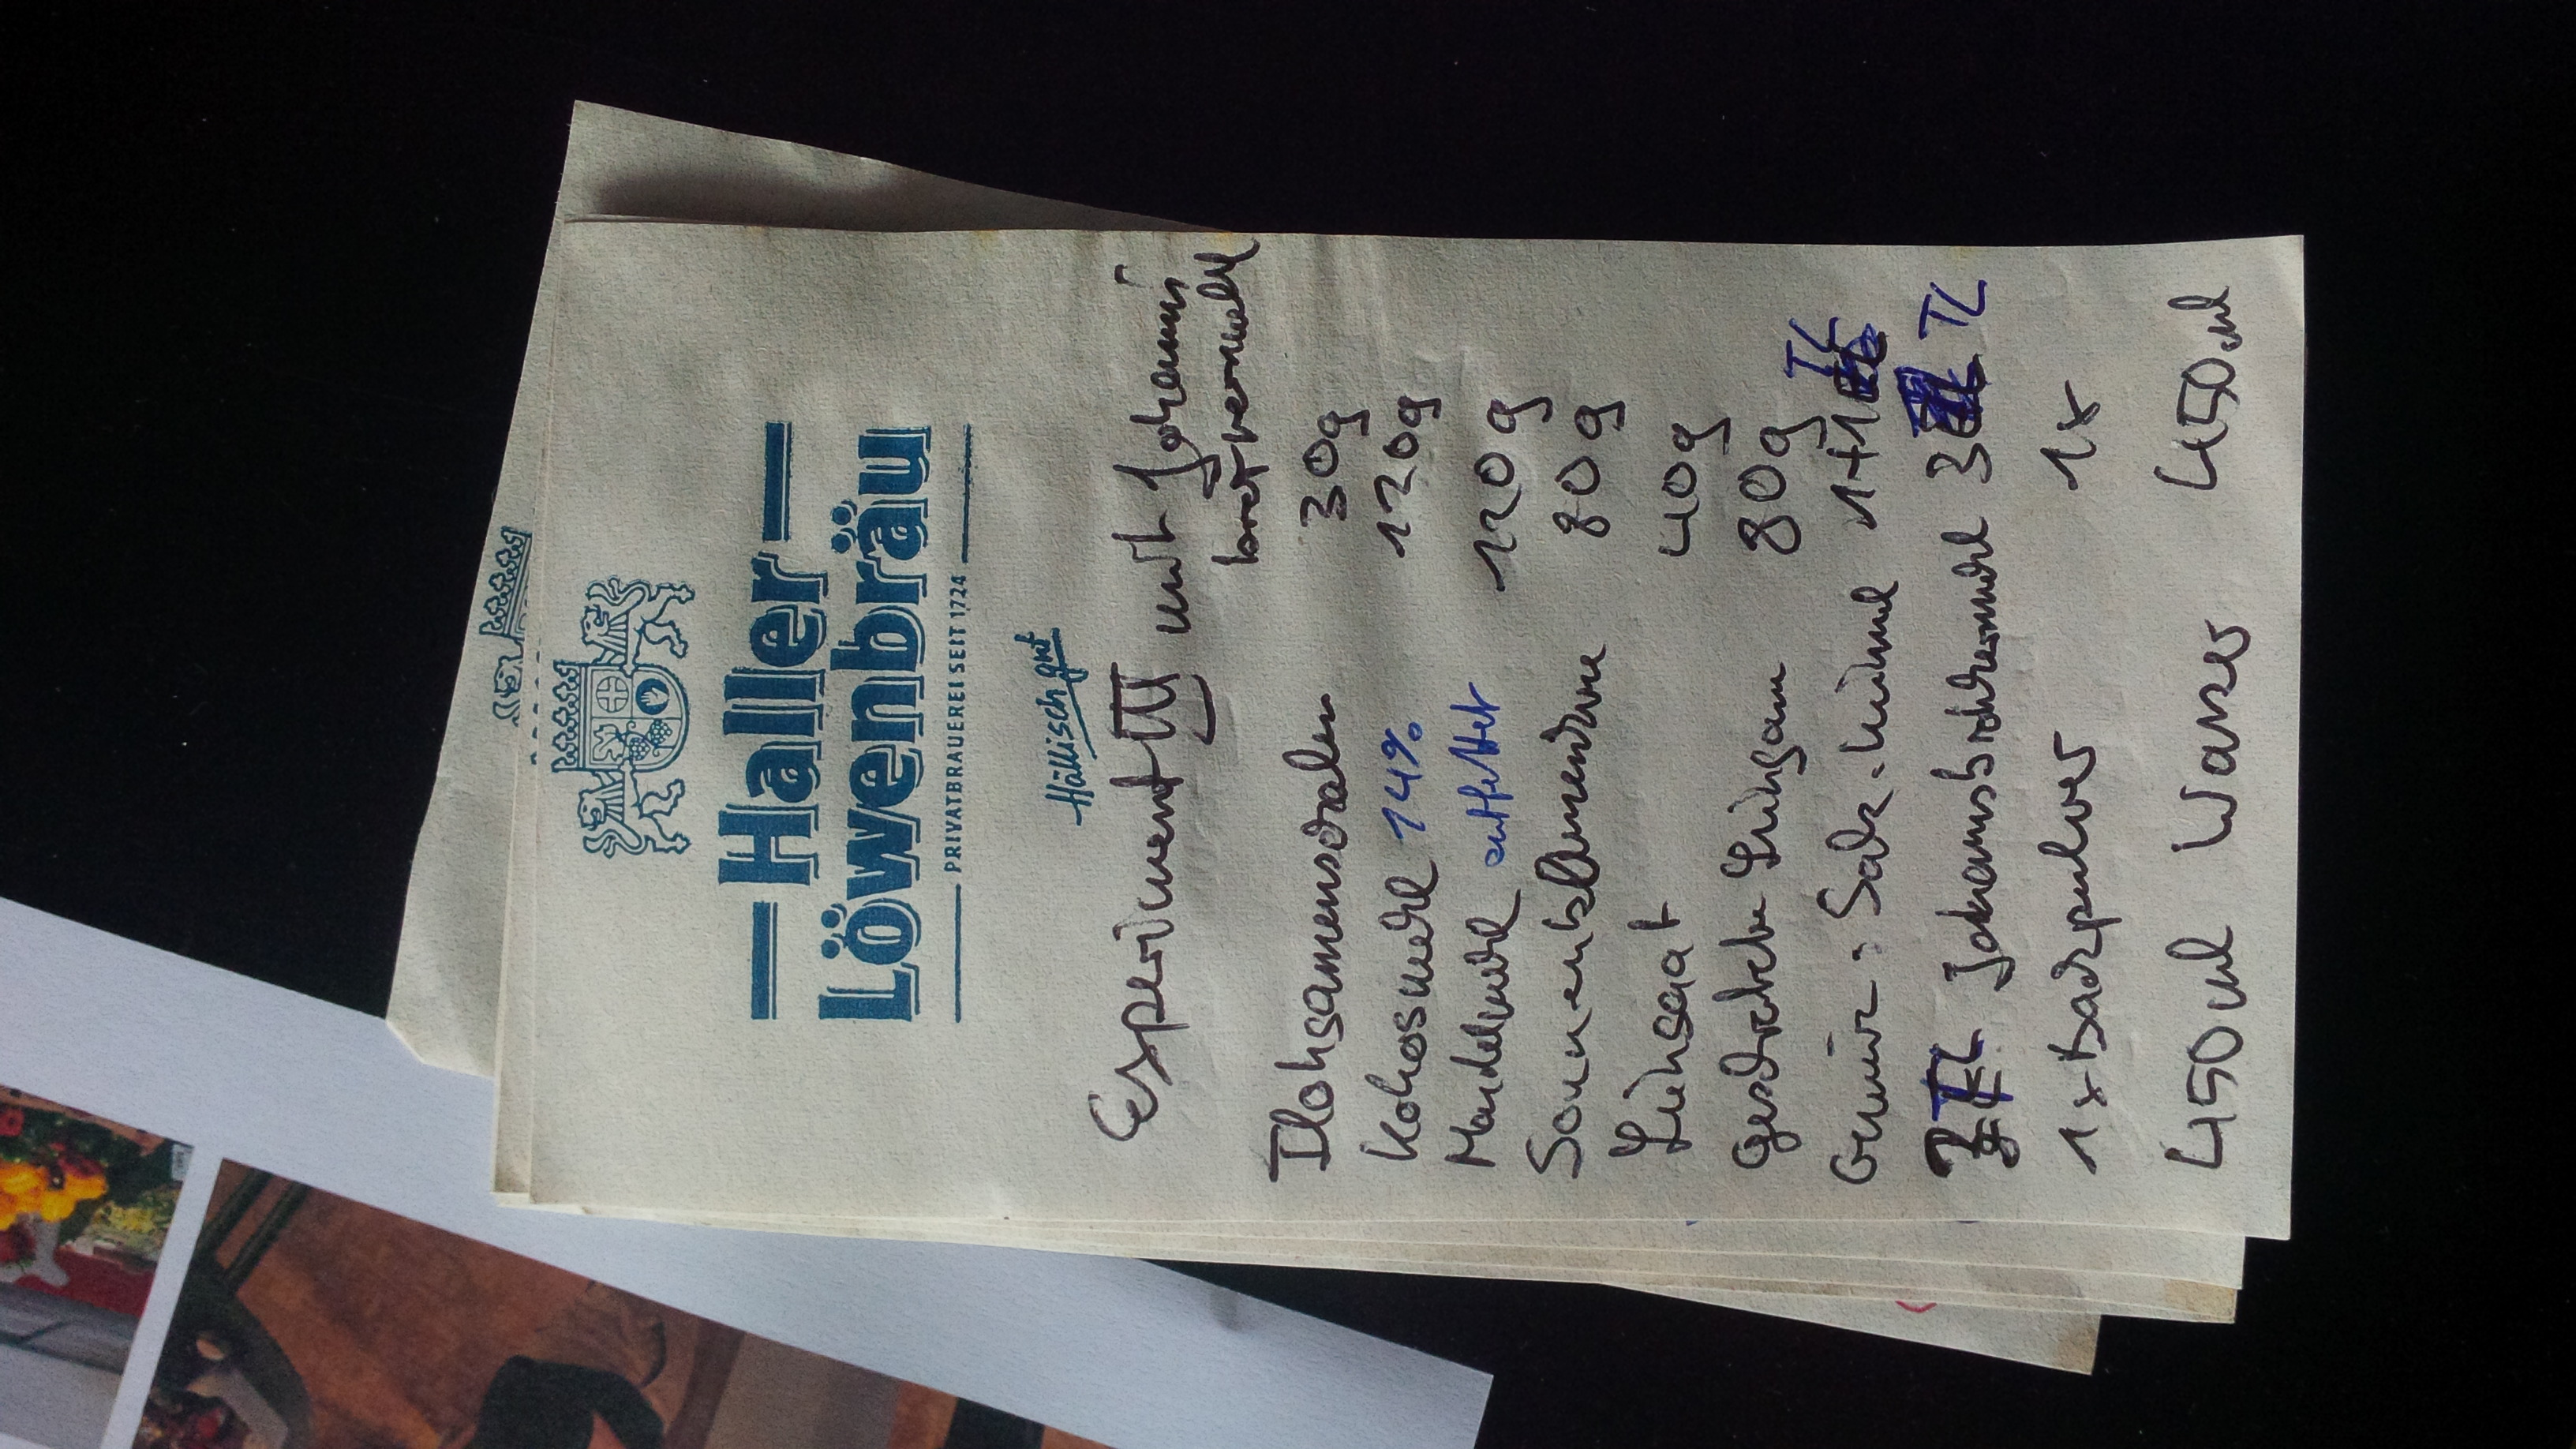 Haller
Löwenbräu
PRIVATBRAUEREI SEIT 1724
Hällisch gut
Experiment III mit Johannis
brotkernmehl
Flohsamenschalen 30g
Kokosmehl 14% 120g
Mandelmehl entfettet 120g
Sonnenblumenkerne 80g
Leinsaat 40g
Geschrotete Leinsam 80g
Gewürz: Salz. Kümmel 1+1 TL
3 TL Johannisbrotkernmehl 3 TL
1x Backpulver 1x
450ml Wasser 450ml